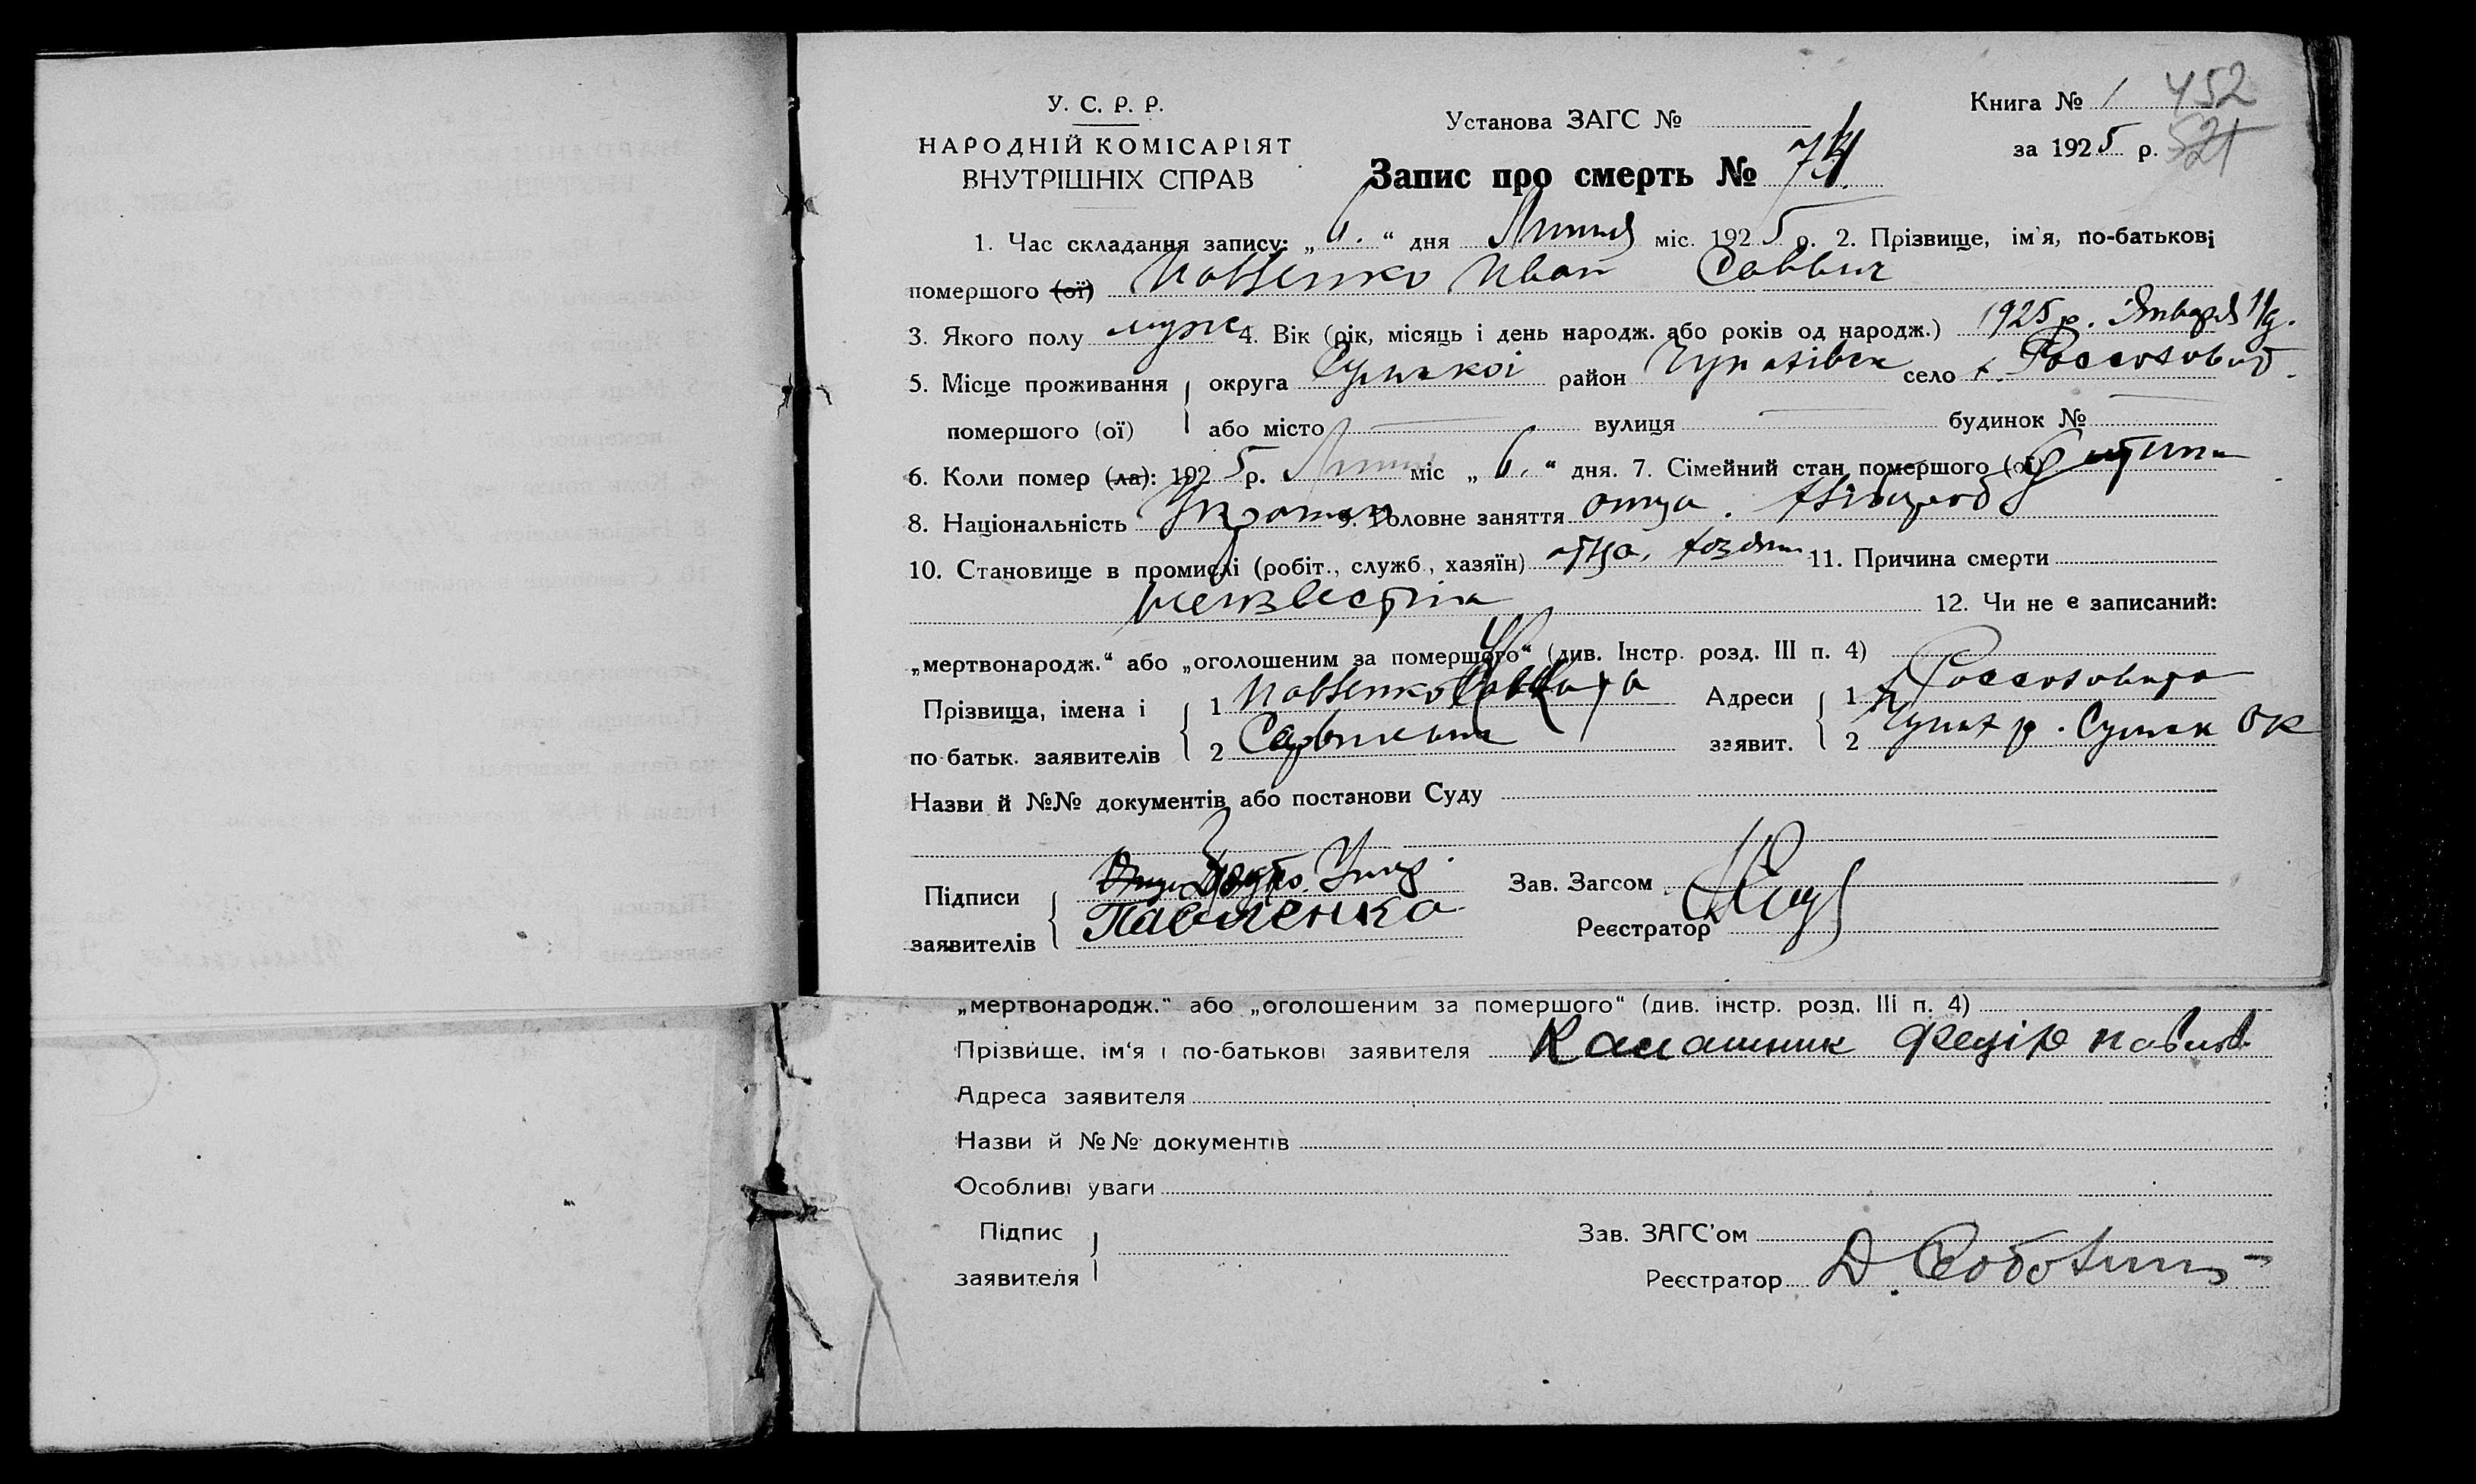 У. С. Р. Р.
НАРОДНІЙ КОМІСАРІЯТ
ВНУТРІШНІХ СПРАВ
Установа ЗАГС №
Запис про смерть № 74
Книга № 1 452
за 1925 р. 521
1. Час складання запису: „6." дня Липня міс. 1925 р. 2. Прізвище, ім'я, по-батькові
помершого (ої) Павленко Иван Саввич
3. Якого полу муж 4. Вік (рік, місяць і день народж. або років од народж.) 1925 р. Января
5. Місце проживання округа Сумской район село х.
помершого (ої) або місто вулиця будинок №
6. Коли помер (ла): 1925 р. Липня міс „6." дня. 7. Сімейний стан помершого (ої) дитина
8. Національність 9. Головне заняття отца. хлібороб
10. Становище в промислі (робіт., служб., хазяїн) отца, хозяин 11. Причина смерти
неизвестна 12. Чи не є записаний:
„мертвонародж." або „оголошеним за помершого" (див. Інстр. розд. III п. 4)
Прізвища, імена і 1 Павленко Адреси 1 х.
по батьк. заявителів 2 заявит. 2 р. Сумск ок
Назви й №№ документів або постанови Суду
Підписи Зав. Загсом
заявителів Павленко Реєстратор
„мертвонародж." або „оголошеним за помершого" (див. інстр. розд. III п. 4)
Прізвище, ім'я і по-батькові заявителя Калашник Федір Павлов
Адреса заявителя
Назви й №№ документів
Особливі уваги
Підпис Зав. ЗАГС'ом
заявителя Реєстратор Д